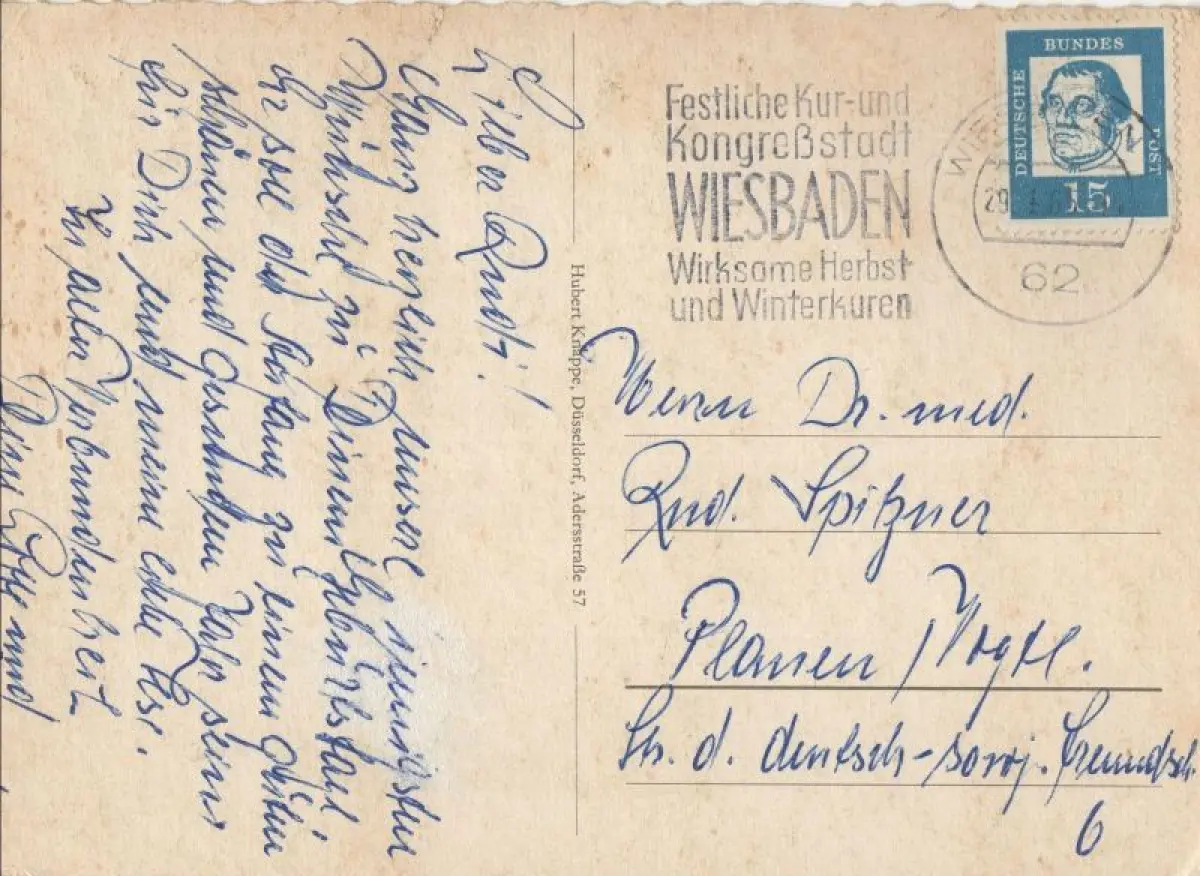 Lieber Rudi!
Ganz herzlich unsere innigsten
Wünsche zu Deinem Geburtstag!
Er soll der Anfang zu einem guten
schönen und gesunden Jahr sein
für Dich und meine
In alter Verbundenheit
Deine und
Hubert Knappe, Düsseldorf, Adersstraße 57
Festliche Kur- und
Kongreßstadt
WIESBADEN
Wirksame Herbst
und Winterkuren
62
DEUTSCHE
BUNDES
POST
15
Herrn Dr. med.
Rud. Spitzner
Plauen/Vogtl.
Str. d. deutsch-sowj. Freundsch.
6